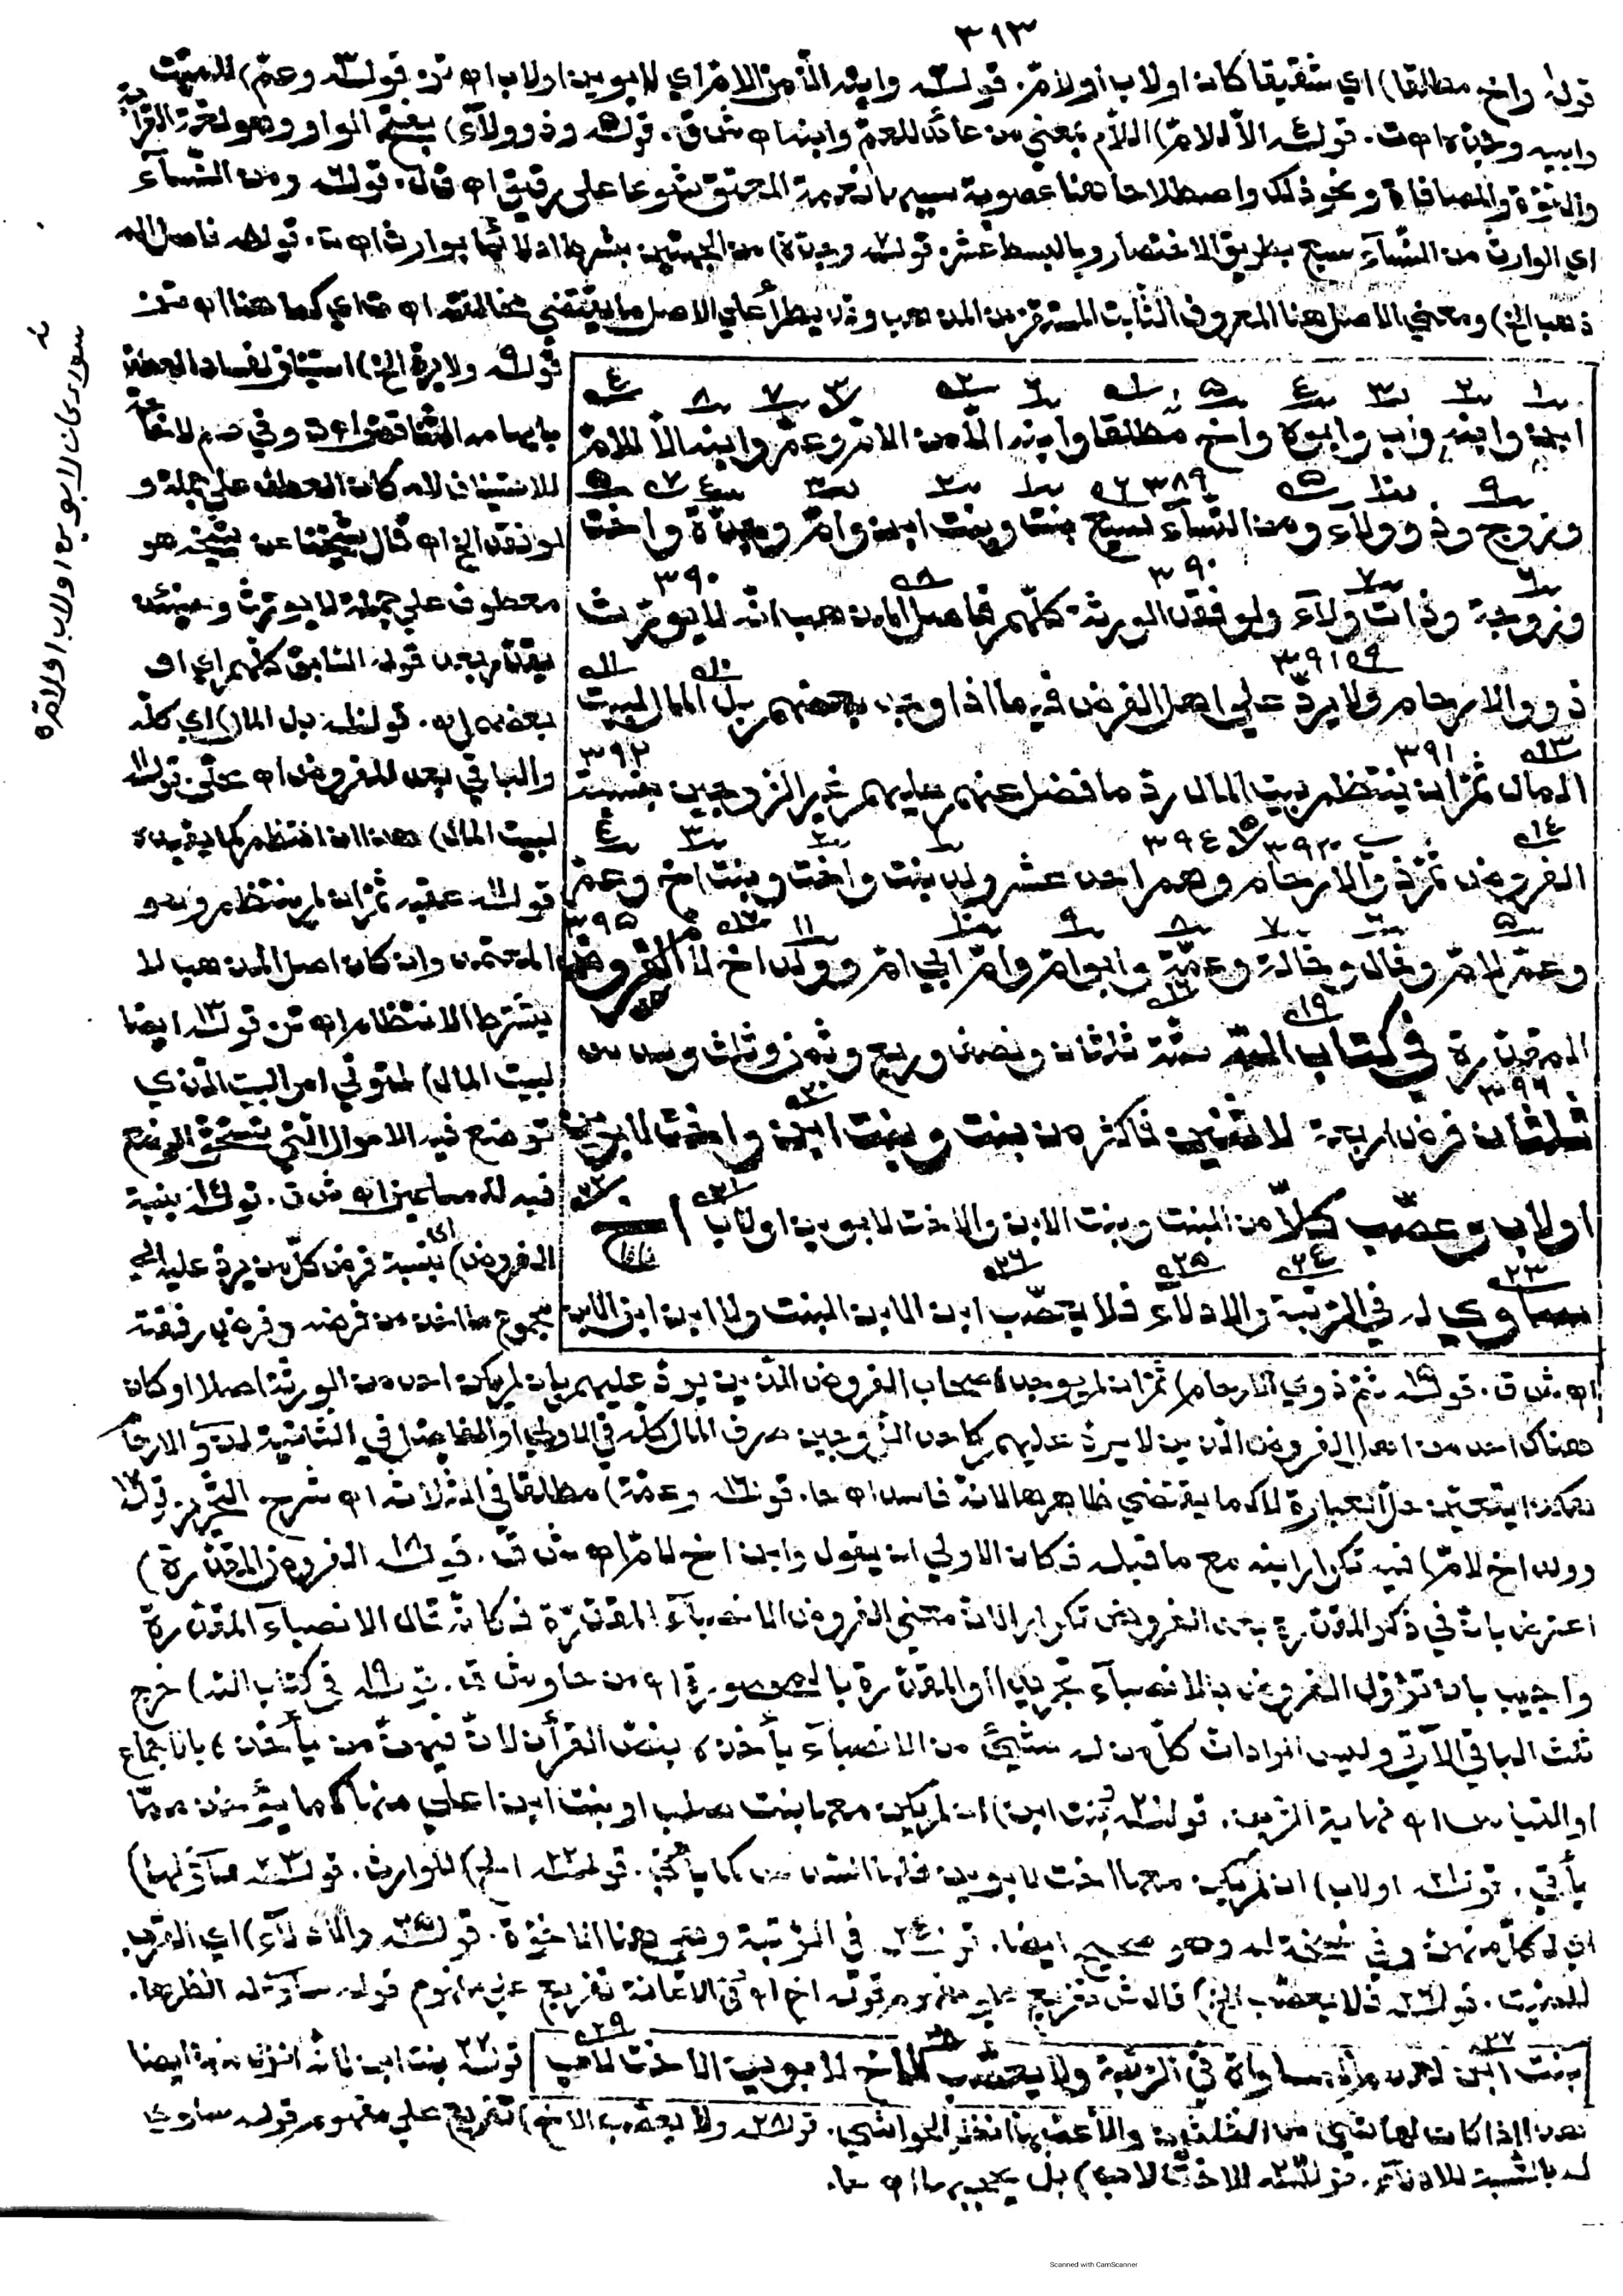 ٣٩٣
قوله واخ مطلقا) اي شقيقا كان او لاب أو لأم. قوله وابنه الا من الام اي لابوين او لاب اه تن. قوله وعم) للميت
وابيه وجده اه ت. قوله الا للام) اللام بمعني من عائد للعم وابنه اه ش ق. قوله وذو ولآء) بفتح الواو وهو لغة القرابة
والنصرة والمصافاة ونحو ذلك واصطلاحا هنا عصوبة سببها نعمة المعتق شوعا على رقيق اه قال. قوله ومن النسآء
اي الوارث من النسآء سبع بطريق الاختصار وبالبسط عشر. قوله وجدة) من الجهتين بشرط ادلائها بوارث اه ت. قوله فاصل الم
ذهب الخ) ومعني الاصل هنا المعروف الثابت المستقر من المذهب وقد يطرأ علي الاصل ما يقتضي مخالفته اه اي كما هنا اه
ابن وابنه واب وابوه واخ مطلقا وابنه الا من الام وعم وابنه الا للام
وزوج وذو ولآء ومن النسآء سبع بنت وبنت ابن وام وجدة واخت
وزوجة وذات ولآء ولو فقد الورثة كلهم فاصل المذهب انه لا يورث
ذوو الارحام ولا يرد علي اهل الفرض فيما اذا وجد بعضهم بل المال لبيت
المال ثم ان لم ينتظم بيت المال رد ما فضل عنهم عليهم غير الزوجين بنسبة
الفروض ثم ذوي الارحام وهم احد عشر ولد بنت واخت وبنت اخ وعم
وعم لام وخال وخالة وعمة وابو ام وام ابي ام وولد اخ لام الفروض
المقدرة في كتاب الله ستة ثلثان ونصف وربع وثمن وثلث وسدس
ثلثان فرض اربعة لاثنين فاكثر من بنت وبنت ابن واخت لابوين
او لاب وعصب كلا من البنت وبنت الابن والاخت لابوين او لاب اخ
ساوي له في الرتبة والادلاء فلا يعصب ابن الابن البنت ولا ابن ابن الابن
قوله ولا يرد الخ) استيناف لفساد العطف
للاستيناف لانه كان العطف علي جملة و
لو فقد الخ اه قال شيخنا عن شيخه هو
معطوف علي جملة لا يورث وحينئذ
يقدر بعد قوله السابق كلهم اي او
بعضهم اه. قوله بل المال) اي كله
والباقي بعد الفروض اه ع ش. قوله
لبيت المال) هذا ان انتظم كما يفيده
قوله عقبه ثم ان لم ينتظم وهو
المعتمد وان كان اصل المذهب لا
يشترط الانتظام اه تن. قوله ايضا
لبيت المال) لمتولي امر البيت الذي
توضع فيه الاموال التي تستحق الوضع
فيه للمسلمين اه ش ق. قوله بنسبة
الفروض) اي بنسبة فرض كل من يرد عليه الي
مجموع ما اخذ من فرضه وفرض رفقته
اه ش ق. قوله ثم ذوي الارحام) ثم ان لم يوجد اصحاب الفروض الذين يرد عليهم بان لم يكن احد من الورثة اصلا او كان
هناك احد من اهل الفروض الذين لا يرد عليهم كاحد الزوجين صرف المال كله في الاولي او الفاضل في الثانية لذوي الارحام
هكذا يتعين حل العبارة لا كما يقتضي ظاهرها لانه فاسد اه ح ا. قوله وعمة) مطلقا في الثلاث اه شرح التحرير. قوله
وولد اخ لام) فيه تكرار ابنه مع ما قبله فكان الاولي ان يقول وابن اخ لام اه ش ق. قوله الفروض المقدرة)
اعترض بان في ذكر المقدرة بعد الفروض تكرارا لان معني الفروض الانصبآء المقدرة فكانه قال الانصبآء المقدرة
واجيب بان تؤول الفروض بالانصبآء تجريدا او المقدرة بالمحصورة اه من ح ا و ش ق. قوله في كتاب الله) خرج
ثلث الباقي الآتي وليس المراد ان كل من له شئ من الانصبآء يأخذه بنص القرآن لان فيهم من يأخذه بالاجماع
او القياس اه نهاية الزين. قوله بنت ابن) ان لم يكن معها بنت صلب او بنت ابن اعلي منها كما يؤخذ مما
يأتي. قوله او لاب) ان لم يكن معها اخت لابوين فلها السدس كما يأتي. قوله اخ) للوارث. قوله ساوي لها)
اي لكل منهن وفي نسخة له وهو صحيح ايضا. قوله في الرتبة وهي هنا الاخوة. قوله والادلآء) اي القرب
للميت. قوله فلا يعصب الخ) قال ش تفريع علي مفهوم قوله اخ اه في الاعانة تفريع علي مفهوم قوله ساوي له انظرها.
بنت ابن لعدم المساواة في الرتبة ولا يعصب الاخ لابوين الاخت لاب
قوله بنت ابن لانه انزل منه ايضا
هذا اذا كان لها شئ من الثلثين والا عصبها انظر الحواشي. قوله ولا يعصب الاخ) تفريع علي مفهوم قوله ساوي
له بالنسبة للادلآء. قوله الاخت لاب) بل يحجبها اه ح ا.
سواء كان لابوين او لاب او لام
Scanned with CamScanner